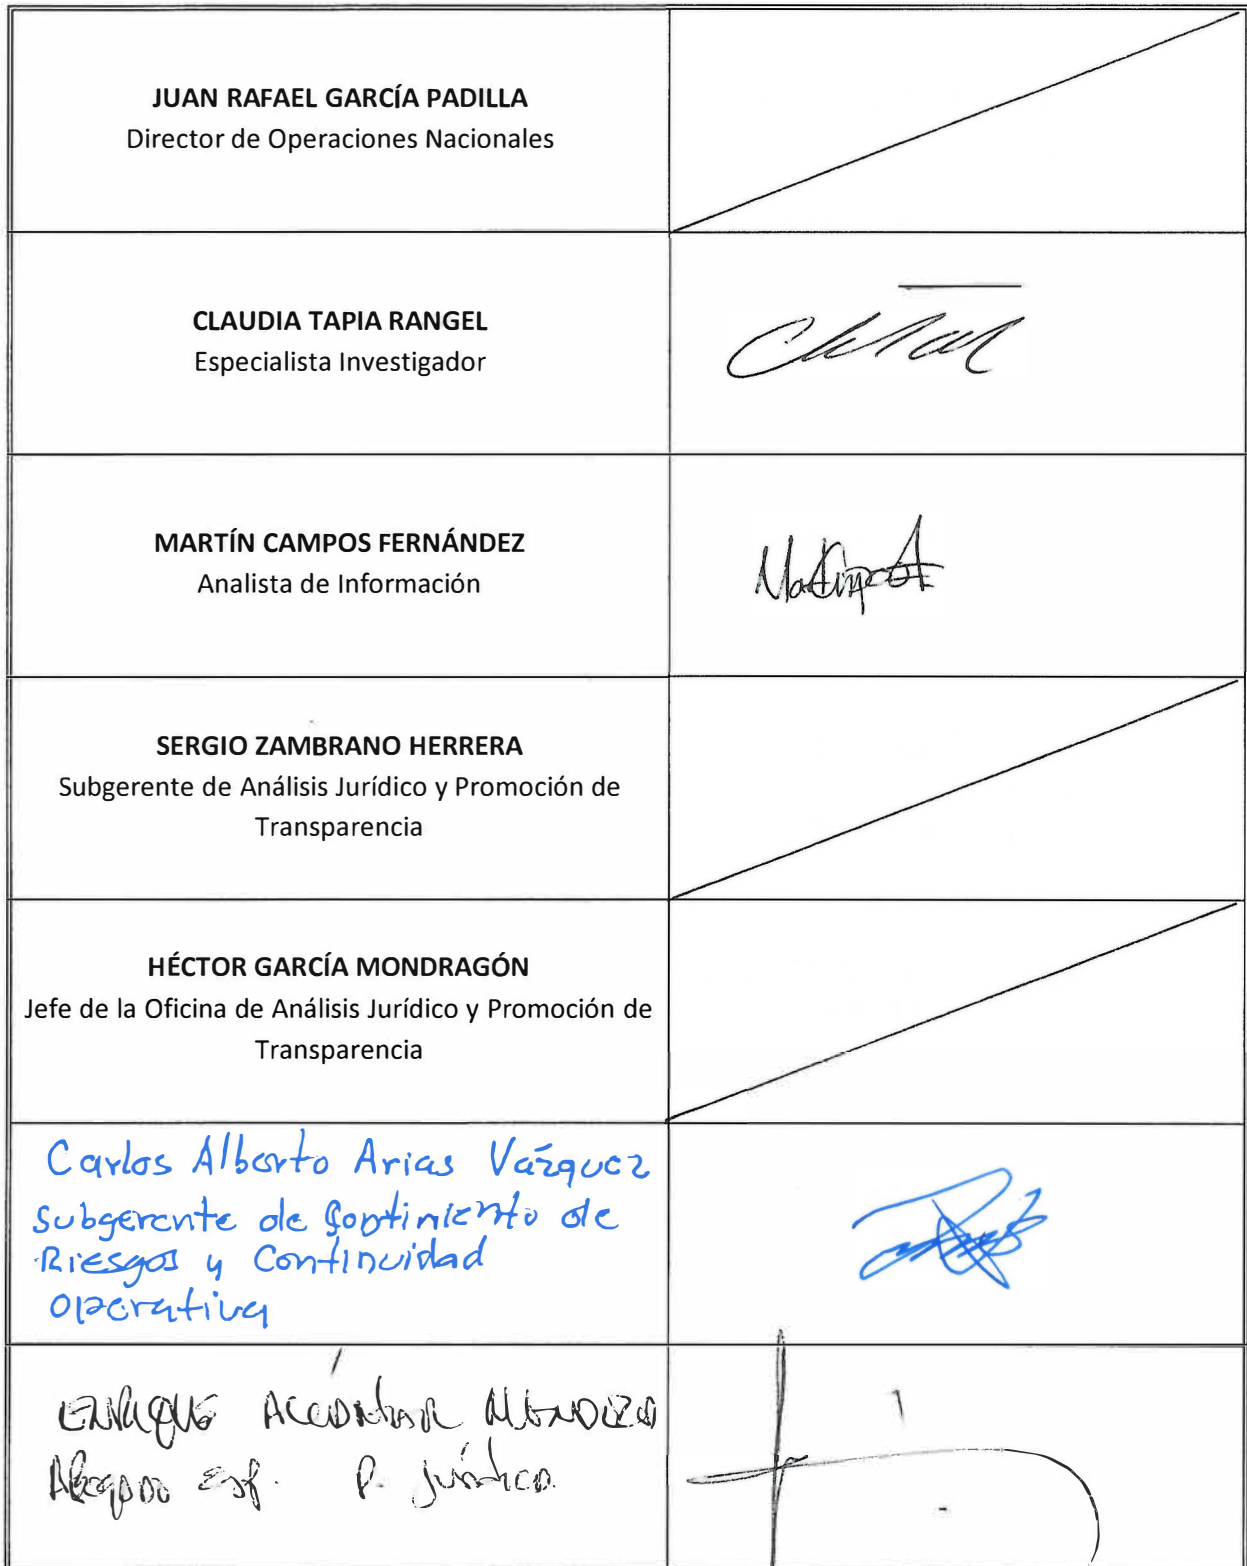 JUAN RAFAEL GARCÍA PADILLA
Director de Operaciones Nacionales
CLAUDIA TAPIA RANGEL
Especialista Investigador
MARTÍN CAMPOS FERNÁNDEZ
Analista de Información
SERGIO ZAMBRANO HERRERA
Subgerente de Análisis Jurídico y Promoción de
Transparencia
HÉCTOR GARCÍA MONDRAGÓN
Jefe de la Oficina de Análisis Jurídico y Promoción de
Transparencia
Carlos Alberto Arias Vázquez
Subgerente de de
Riesgos y Continuidad
operativa
ENRIQUE ALCÁNTAR MENDOZA
Abogado Esp.